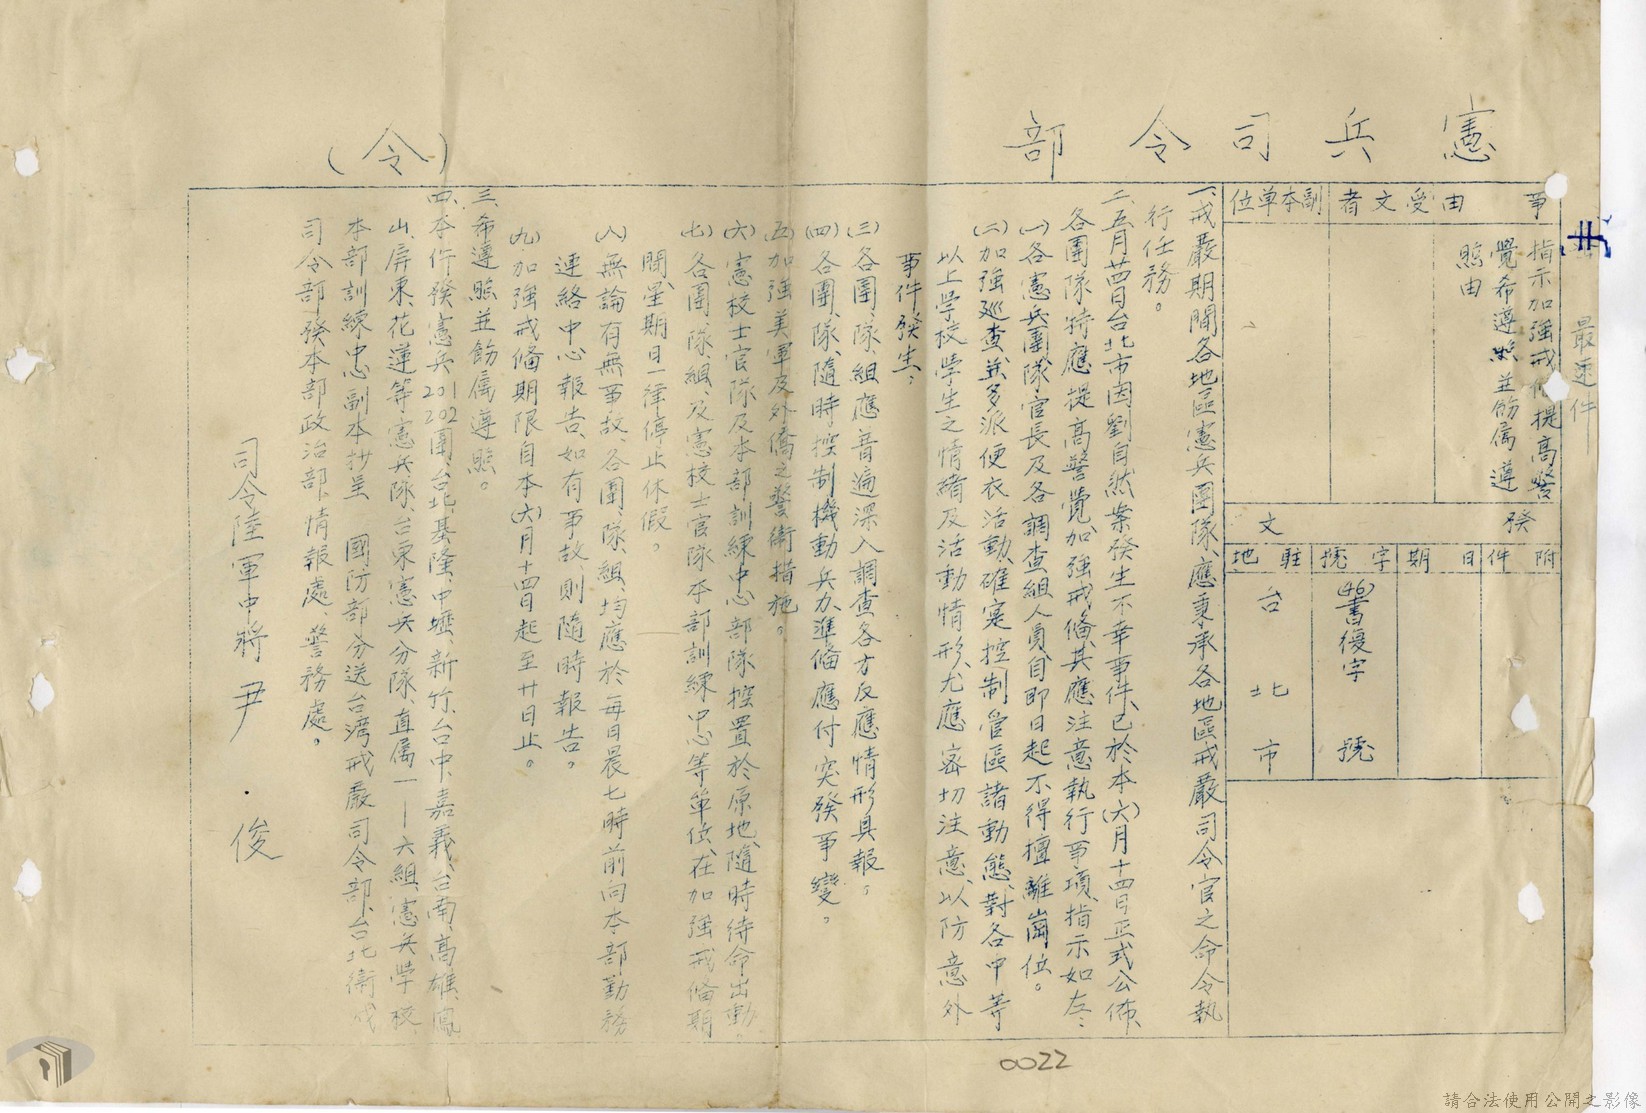 憲兵司令部
(令)
最速件
事由
受文者
副本單位
指示加強戒備提高警
覺希遵照並飭属遵
照由
發文
附件
日期
字號
駐地
(46)書復字 號
台北市
一、戒嚴期間各地區憲兵團隊、應秉承各地區戒嚴司令官之命令執
行任務。
二、五月廿四日台北市因劉自然案發生不幸事件、已於本(六)月十四日正式公佈、
各團隊特應提高警覺、加強戒備、其應注意執行事項、指示如左：
(一)各憲兵團隊官長及各調查組人員、自即日起不得擅離崗位。
(二)加強巡查、並多派便衣活動、確實控制管區諸動態、對各中等
以上學校學生之情緒及活動情形、尤應密切注意、以防意外
事件發生。
(三)各團、隊、組應普遍深入調查各方反應情形具報。
(四)各團、隊、隨時控制機動兵力、準備應付突發事變。
(五)加強美軍及外僑之警衛措施。
(六)憲校士官隊及本部訓練中心部隊控置於原地、隨時待命出動。
(七)各團、隊、組、及憲校士官隊本部訓練中心等單位、在加強戒備期
間、星期日一律停止休假。
(八)無論有無事故、各團、隊、組、均應於每日晨七時前向本部勤務
連絡中心報告、如有事故、則隨時報告。
(九)加強戒備期限自本(六)月十四日起至廿日止。
三、希遵照並飭属遵照。
四、本件發憲兵201 202團、台北、基隆、中壢、新竹、台中、嘉義、台南、高雄、鳳
山、屏東、花蓮等憲兵隊、台東憲兵分隊、直属一——六組、憲兵學校、
本部訓練中心副本抄呈 國防部分送台灣戒嚴司令部、台北衛戍
司令部、發本部政治部、情報處、警務處。
司令陸軍中將尹 俊
0022
請合法使用公開之影像